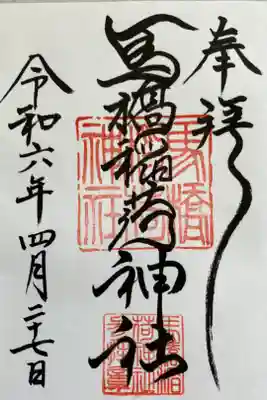 奉拝
馬橋稲荷神社
馬橋
神社
令和六年四月二十七日